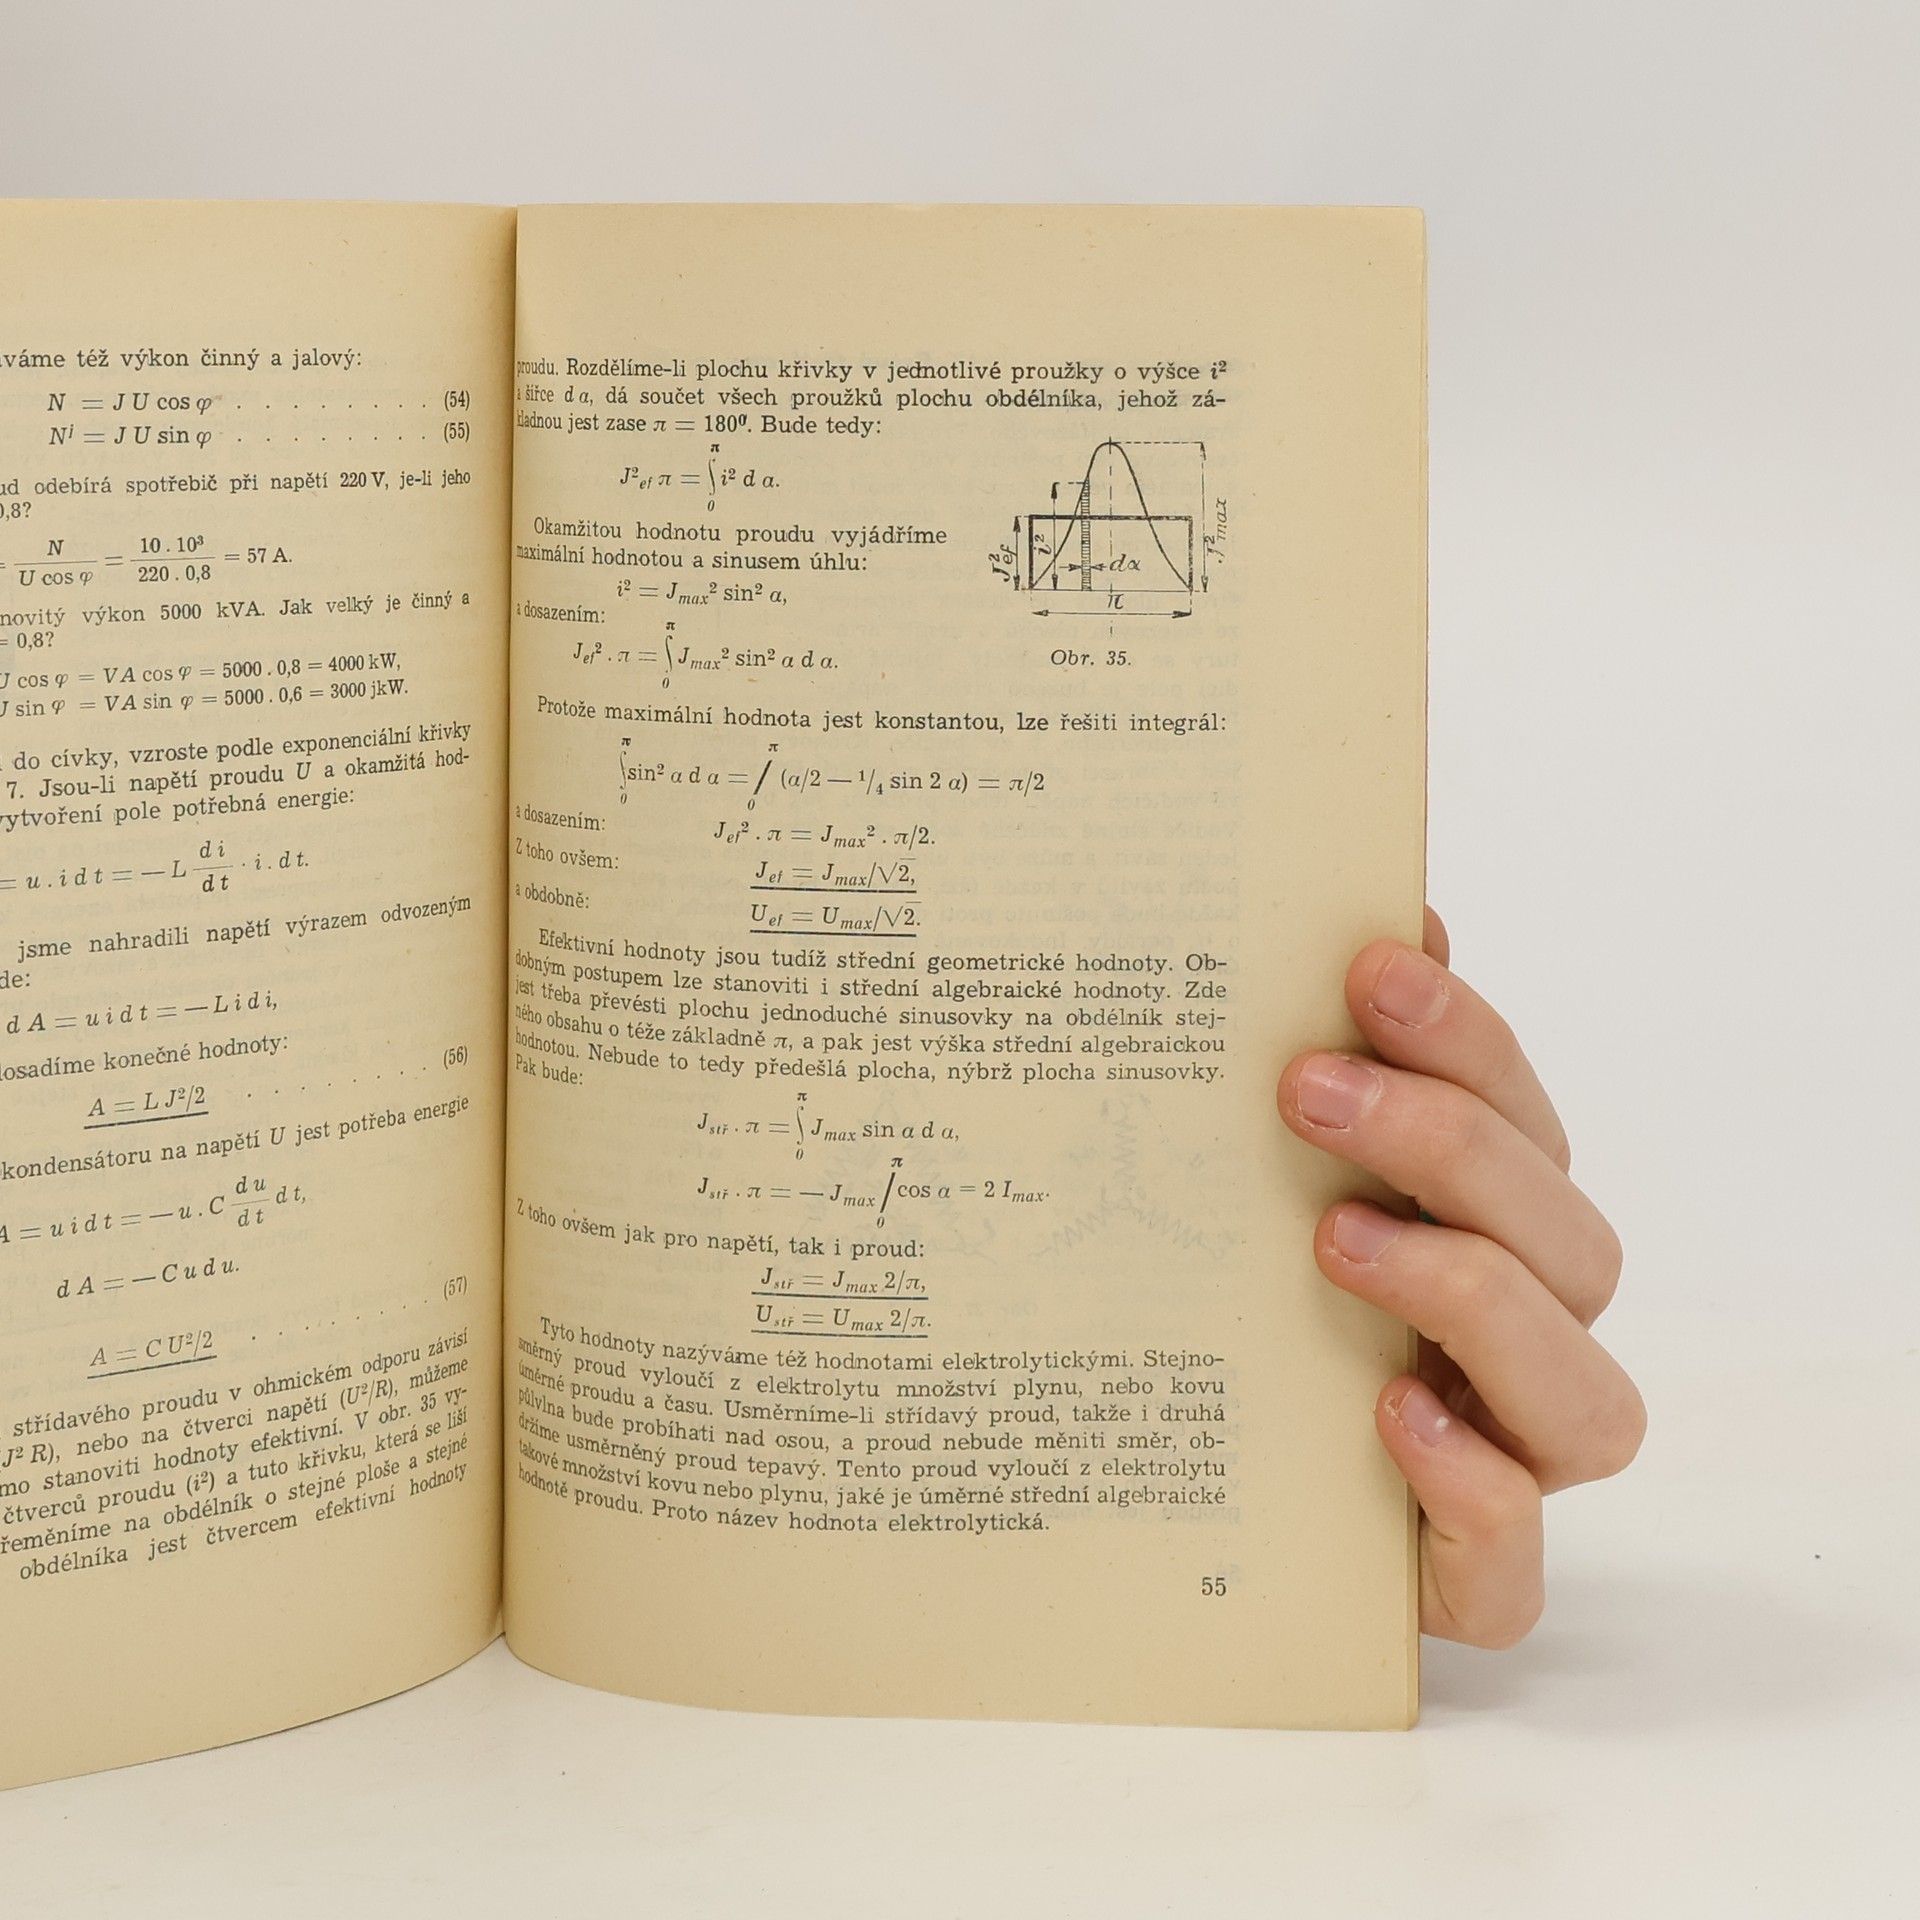 váme též výkon činný a jalový:
N = J U cos φ . . . . . . . . (54)
Nʲ = J U sin φ . . . . . . . . (55)
ud odebírá spotřebič při napětí 220 V, je-li jeho
0,8?
= N / U cos φ = 10 . 10³ / 220 . 0,8 = 57 A.
novitý výkon 5000 kVA. Jak velký je činný a
= 0,8?
U cos φ = VA cos φ = 5000 . 0,8 = 4000 kW,
U sin φ = VA sin φ = 5000 . 0,6 = 3000 jkW.
do cívky, vzroste podle exponenciální křivky
7. Jsou-li napětí proudu U a okamžitá hod-
vytvoření pole potřebná energie:
= u . i d t = — L d i / d t . i . d t.
jsme nahradili napětí výrazem odvozeným
de:
d A = u i d t = — L i d i,
dosadíme konečné hodnoty:
A = L J²/2 . . . . . . . (56)
kondensátoru na napětí U jest potřeba energie
A = u i d t = — u . C d u / d t d t,
d A = — C u d u.
A = C U²/2 . . . . . . . (57)
střídavého proudu v ohmickém odporu závisí
J² R), nebo na čtverci napětí (U²/R), můžeme
mo stanoviti hodnoty efektivní. V obr. 35 vy-
čtverců proudu (i²) a tuto křivku, která se liší
řeměníme na obdélník o stejné ploše a stejné
obdélníka jest čtvercem efektivní hodnoty
proudu. Rozdělíme-li plochu křivky v jednotlivé proužky o výšce i²
a šířce d α, dá součet všech proužků plochu obdélníka, jehož zá-
kladnou jest zase π = 180⁰. Bude tedy:
J²ef π = ∫₀^π i² d α.
Okamžitou hodnotu proudu vyjádříme
maximální hodnotou a sinusem úhlu:
i² = Jmax² sin² α,
a dosazením:
Jef² . π = ∫₀^π Jmax² sin² α d α.
J²ef
i²
dα
J²max
π
Obr. 35.
Protože maximální hodnota jest konstantou, lze řešiti integrál:
∫₀^π sin² α d α = /₀^π (α/2 — ¹/₄ sin 2 α) = π/2
a dosazením:
Jef² . π = Jmax² . π/2.
Z toho ovšem:
Jef = Jmax/√2,
a obdobně:
Uef = Umax/√2.
Efektivní hodnoty jsou tudíž střední geometrické hodnoty. Ob-
dobným postupem lze stanoviti i střední algebraické hodnoty. Zde
jest třeba převésti plochu jednoduché sinusovky na obdélník stej-
ného obsahu o téže základně π, a pak jest výška střední algebraickou
hodnotou. Nebude to tedy předešlá plocha, nýbrž plocha sinusovky.
Pak bude:
Jstř . π = ∫₀^π Jmax sin α d α,
Jstř . π = — Jmax /₀^π cos α = 2 Imax.
Z toho ovšem jak pro napětí, tak i proud:
Jstř = Jmax 2/π,
Ustř = Umax 2/π.
Tyto hodnoty nazýváme též hodnotami elektrolytickými. Stejno-
směrný proud vyloučí z elektrolytu množství plynu, nebo kovu
úměrné proudu a času. Usměrníme-li střídavý proud, takže i druhá
půlvlna bude probíhati nad osou, a proud nebude měniti směr, ob-
držíme usměrněný proud tepavý. Tento proud vyloučí z elektrolytu
takové množství kovu nebo plynu, jaké je úměrné střední algebraické
hodnotě proudu. Proto název hodnota elektrolytická.
55